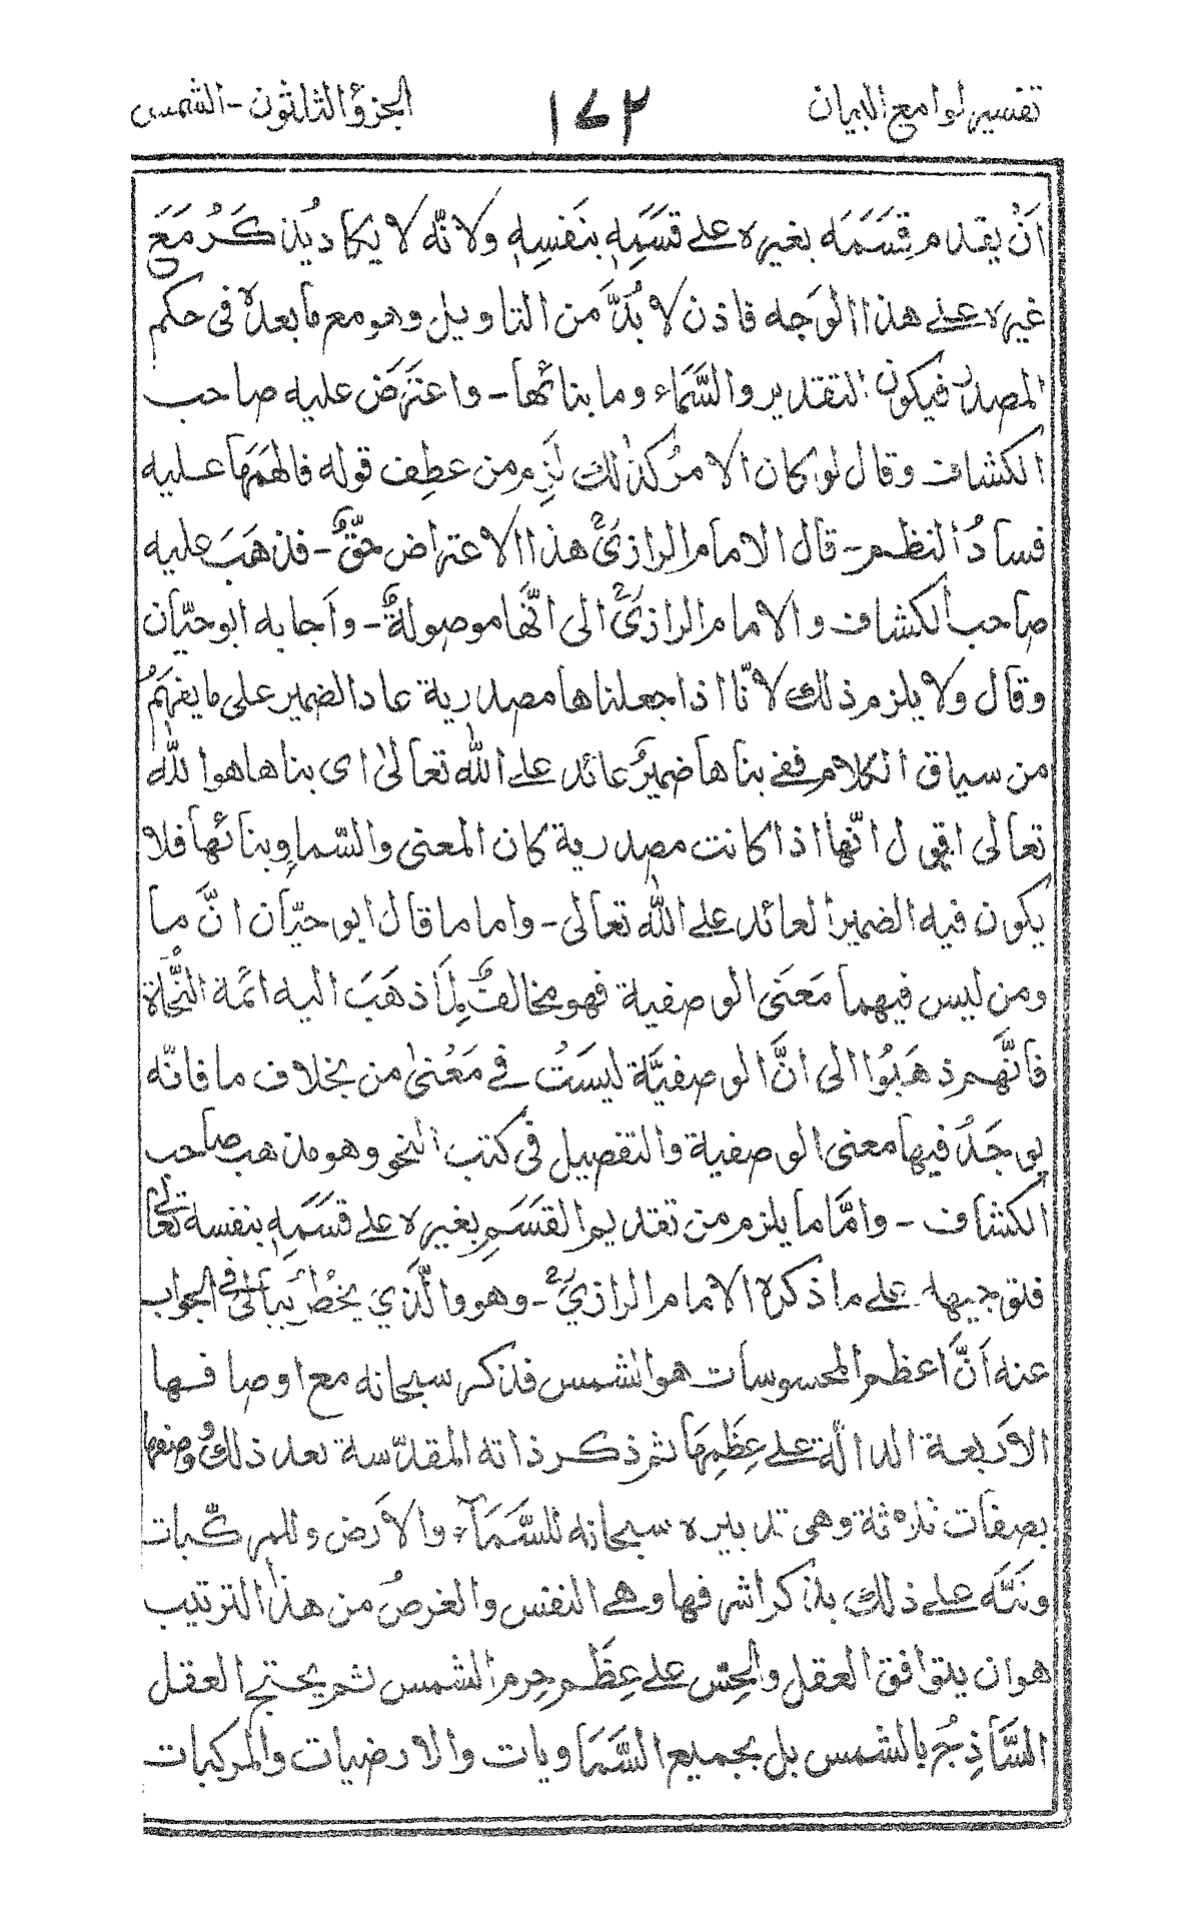 تفسير لوامع البيان ١٧٢ الجزؤ الثلثون - الشمس
اَنْ يقدم قِسَمَه بغيره على قَسَمِه بنَفسِه ولانّه لا يكاد يُذكَرُ مَعَ
غيره على هذا الوَجه فاذن لا بُدَّ من التاويل وهو مع مابعده فى حكم
المصدر فيكون التقدير والسَّمَاء وما بنائها - واعترَضَ عليه صاحب
الكشاف وقال لو كان الامرُ كذٰلك لزِم من عطف قوله فالهَمَهَا عليه
فسادُ النظم - قال الامام الرازىؒ هذا الاعتراض حقٌّ - فذهَبَ عليه
صاحب الكشاف والامام الرازىؒ الى انّها موصولةٌ - واَجابه ابو حيّان
وقال ولا يلزم ذلك لانّا اذا جعلناها مصدرية عاد الضمير على مايفهَمُ
من سياق الكلام ففى بناها ضميرٌ عائد على الله تعالىٰ اى بناها هو الله
تعالى اقول انّها اذا كانت مصدرية كان المعنى والسّماءِ وبنائها فلا
يكون فيه الضمير العائد على الله تعالى - واما ما قال ابو حيّان انَّ ما
ومن ليس فيهما مَعنَى الوصفية فهو مخالفٌ لِمَا ذهَبَ اليه ائمة النُّحاة
فانَّهم ذهَبُوا الى انَّ الوصفيَّة ليسَتْ فى مَعْنىٰ من بخلاف ما فانّه
يوجَدُ فيها معنى الوصفية والتفصيل فى كتب النحو وهو مذهب صاحب
الكشاف - وامَّا ما يلزم من تقديم القسَمِ بغيره على قسَمِه بنفسه تعالىٰ
فتوجيهه على ما ذكره الامام الرازىؒ - وهو والّذي يخطُرُ ببالى فى الجواب
عنه اَنَّ اعظم المحسوسات هو الشمس فذكر سبحانه مع اوصافها
الاربعة الدالّة على عِظَمِهَا ثم ذكر ذاته المقدّسة بعد ذلك وصفها
بصفات ثلاثة وهى تدبيره سبحانه للسَّمَآء والارَض وللمركّبات
ونبَّه على ذلك بذكر اشرفها وهى النفس والغرضُ من هذا الترتيب
هو ان يتوافق العقل والحِسّ على عِظَم جِرم الشمس ثم يحتج العقل
السَّاذِجُ بالشمس بل بجميع السَّمَاويات والارضيات والمركبات